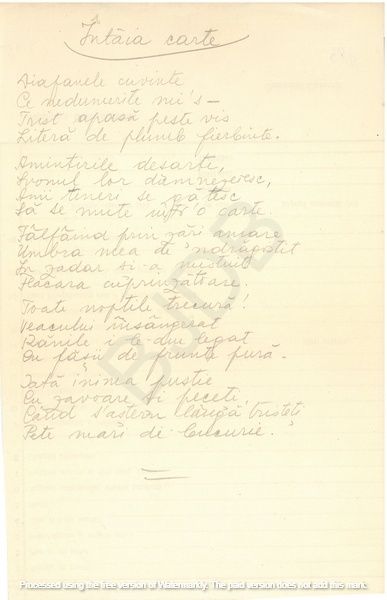 Întâia carte
Diafanele cuvinte
Ce nedumerite mi's –
Trist apasă peste vis
Literă de plumb fierbinte.
Amintirile deşarte,
Svonul lor dumnezeesc,
Ani tineri se gătesc
Să se mute într'o carte
Fâlfâind prin zări amare
Umbra mea de 'ndrăgostit
În zadar şi-a
Flacăra cuprinzătoare.
Toate nopţile trecură!
Veacului însângerat
Rănile i le-duc legat
Cu fâşii de frunte pură.
Iată inima pustie
Cu zavoare şi peceţi,
Când s'aştern lângă tristeţi
Pete mari de bucurie.
BJDB
Processed using the free version of Watermarkly. The paid version does not add this mark.